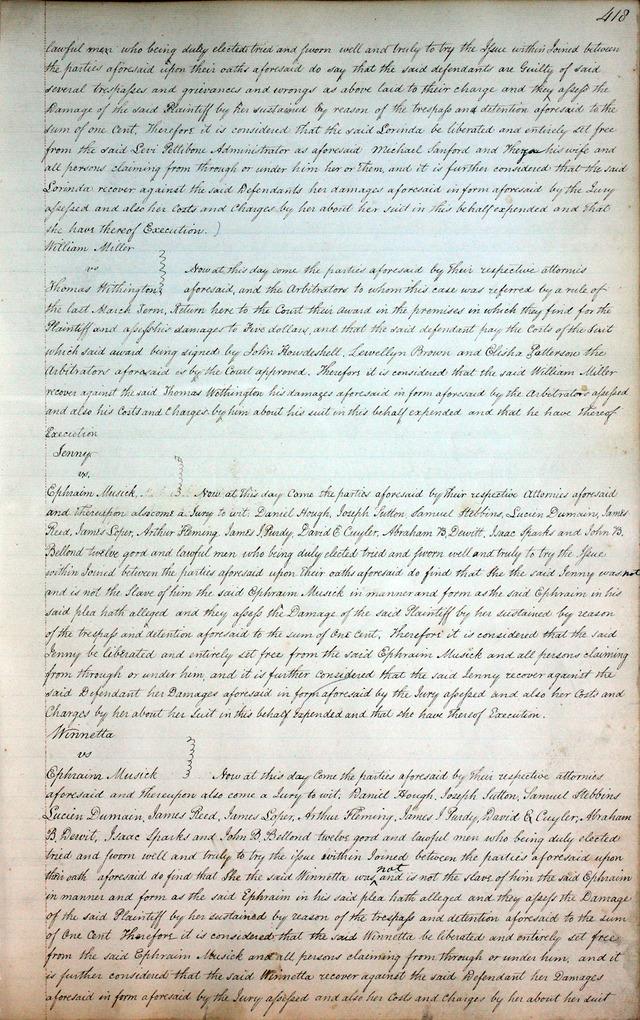 418
lawful men who being duly elected tried and sworn well and truly to try the Issue within Joined between
the parties aforesaid upon their oaths aforesaid do say that the said defendants are Guilty of said
several trespasses and grievances and wrongs as above laid to their charge and they assess the
Damage of the said Plaintiff by her sustained by reason of the trespass and detention aforesaid to the
sum of one Cent, Therefore it is considered that the said Lorinda be liberated and entirely set free
from the said Levi Pettibone Administrator as aforesaid Michael Sanford and his wife and
all persons claiming from through or under him her or them, and it is further considered that the said
Lorinda recover against the said Defendants her damages aforesaid in form aforesaid by the Jury
assessed and also her Costs and Charges by her about her suit in this behalf expended and that
she have thereof Execution.)
William Miller
vs
Thomas Withington
Now at this day come the parties aforesaid by their respective attornies
aforesaid, and the Arbitrators to whom this case was referred by a rule of
the last March Term, Return here to the Court their award in the premises in which they find for the
Plaintiff and assess his damages to Five dollars, and that the said defendant pay the Costs of the Suit
which said award being signed by John Howdeshell, Lewellyn Brown and Elisha Patterson the
Arbitrators aforesaid is by the Court approved. Therefore it is considered that the said William Miller
recover against the said Thomas Wethington his damages aforesaid in form aforesaid by the Arbitrators assessed
and also his Costs and Charges by him about his suit in this behalf expended and that he have thereof
Execution
Jenny
vs.
Ephraim Musick. Now at this day Come the parties aforesaid by their respective Attornies aforesaid
and thereupon also come a Jury to wit, Daniel Hough, Joseph Sutton, Samuel Stebbins, Lucien Dumain, James
Reed, James Loper, Arthur Fleming, James J Purdy, David E Cuyler, Abraham B, Dewitt, Isaac Sparks and John B,
Bellond twelve good and lawful men who being duly elected tried and sworn well and truly to try the Issue
within Joined between the parties aforesaid upon their oaths aforesaid do find that She the said Jenny was not
and is not the Slave of him the said Ephraim Musick in manner and form as the said Ephraim in his
said plea hath alleged and they assess the Damage of the said Plaintiff by her sustained by reason
of the trespass and detention aforesaid to the sum of One Cent, Therefore it is considered that the said
Jenny be liberated and entirely set free from the said Ephraim Musick and all persons claiming
from through or under him, and it is further Considered that the said Jenny recover against the
said Defendant her Damages aforesaid in form aforesaid by the Jury assessed and also her Costs and
Charges by her about her Suit in this behalf expended and that she have thereof Execution.
Winnetta
vs
Ephraim Musick Now at this day Come the parties aforesaid by their respective attornies
aforesaid and thereupon also come a Jury to wit, Daniel Hough, Joseph Sutton, Samuel Stebbins
Lucien Dumain, James Reed, James Loper, Arthur Fleming, James J Purdy, David E Cuyler, Abraham
B, Dewit, Isaac Sparks and John B, Bellond twelve good and lawful men who being duly elected
tried and sworn well and truly to try the issue within Joined between the parties aforesaid upon
their oath aforesaid do find that She the said Winnetta was not and is not the slave of him the said Ephraim
in manner and form as the said Ephraim in his said plea hath alleged and they assess the Damage
of the said Plaintiff by her sustained by reason of the trespass and detention aforesaid to the sum
of One Cent Therefore it is considered that the said Winnetta be liberated and entirely set free
from the said Ephraim Musick and all persons claiming from through or under him, and it
is further considered that the said Winnetta recover against the said Defendant her Damages
aforesaid in form aforesaid by the Jury assessed and also her Costs and charges by her about her suit